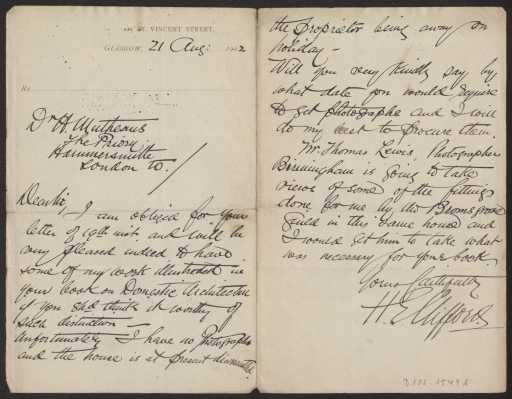 St. VINCENT STREET,
GLASGOW, 21 Aug: 1902
Dr H. Muthesius
The Priory
Hammersmith
London W.
Dear Sir,
I am obliged for your
letter of 19th inst. and will be
very pleased indeed to have
some of my work illustrated in
your book on Domestic Architecture
if you shd think it worthy of
such distinction —
Unfortunately I have no Photographs
and the house is at present dismantled
the proprietor being away on
holiday —
Will you very kindly say by
what date you would require
to get photographs and I will
do my best to procure them.
Mr. Thomas Lewis, Photographer
Birmingham is going to take
views of some of the fittings
done for me by the Bromsgrove
Guild in this same house and
I would get him to take what
was necessary for your book.
Yours faithfully
H E Clifford